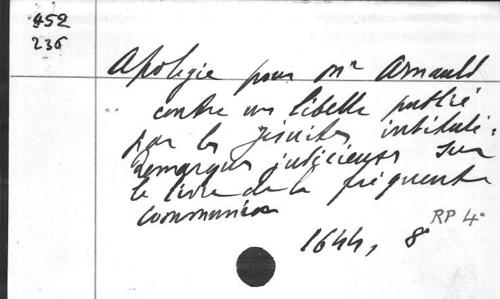 452
236
Apologie pour Mr Arnauld
contre un libelle publié
par les Jésuites, intitulé :
Remarques judicieuses sur
le livre de la fréquente
communion
RP 4°
1644, 8°